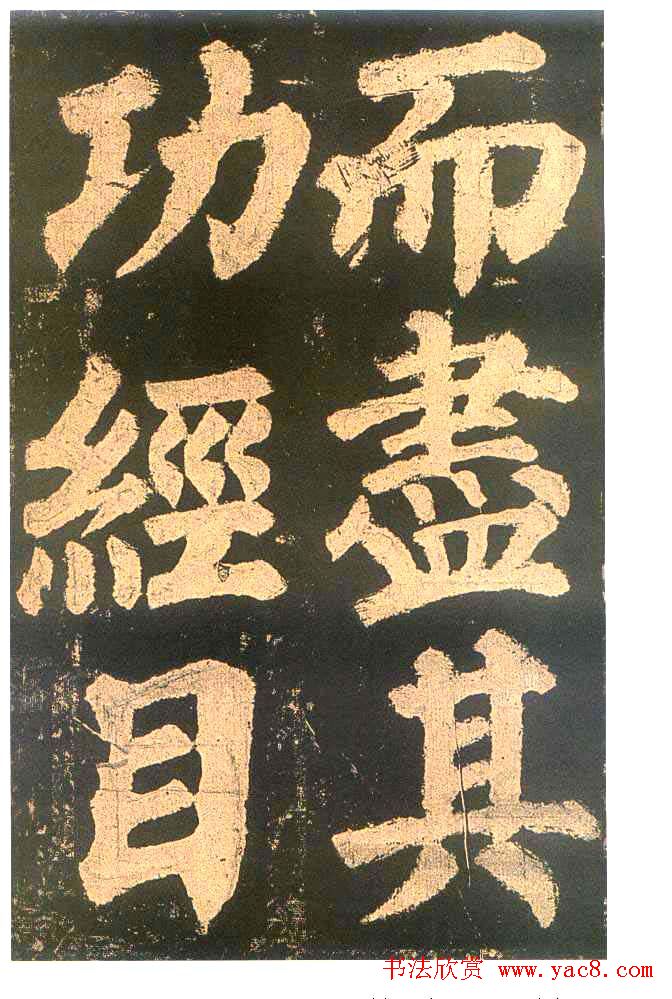 而盡其
功經目
书法欣赏 www.yac8.com